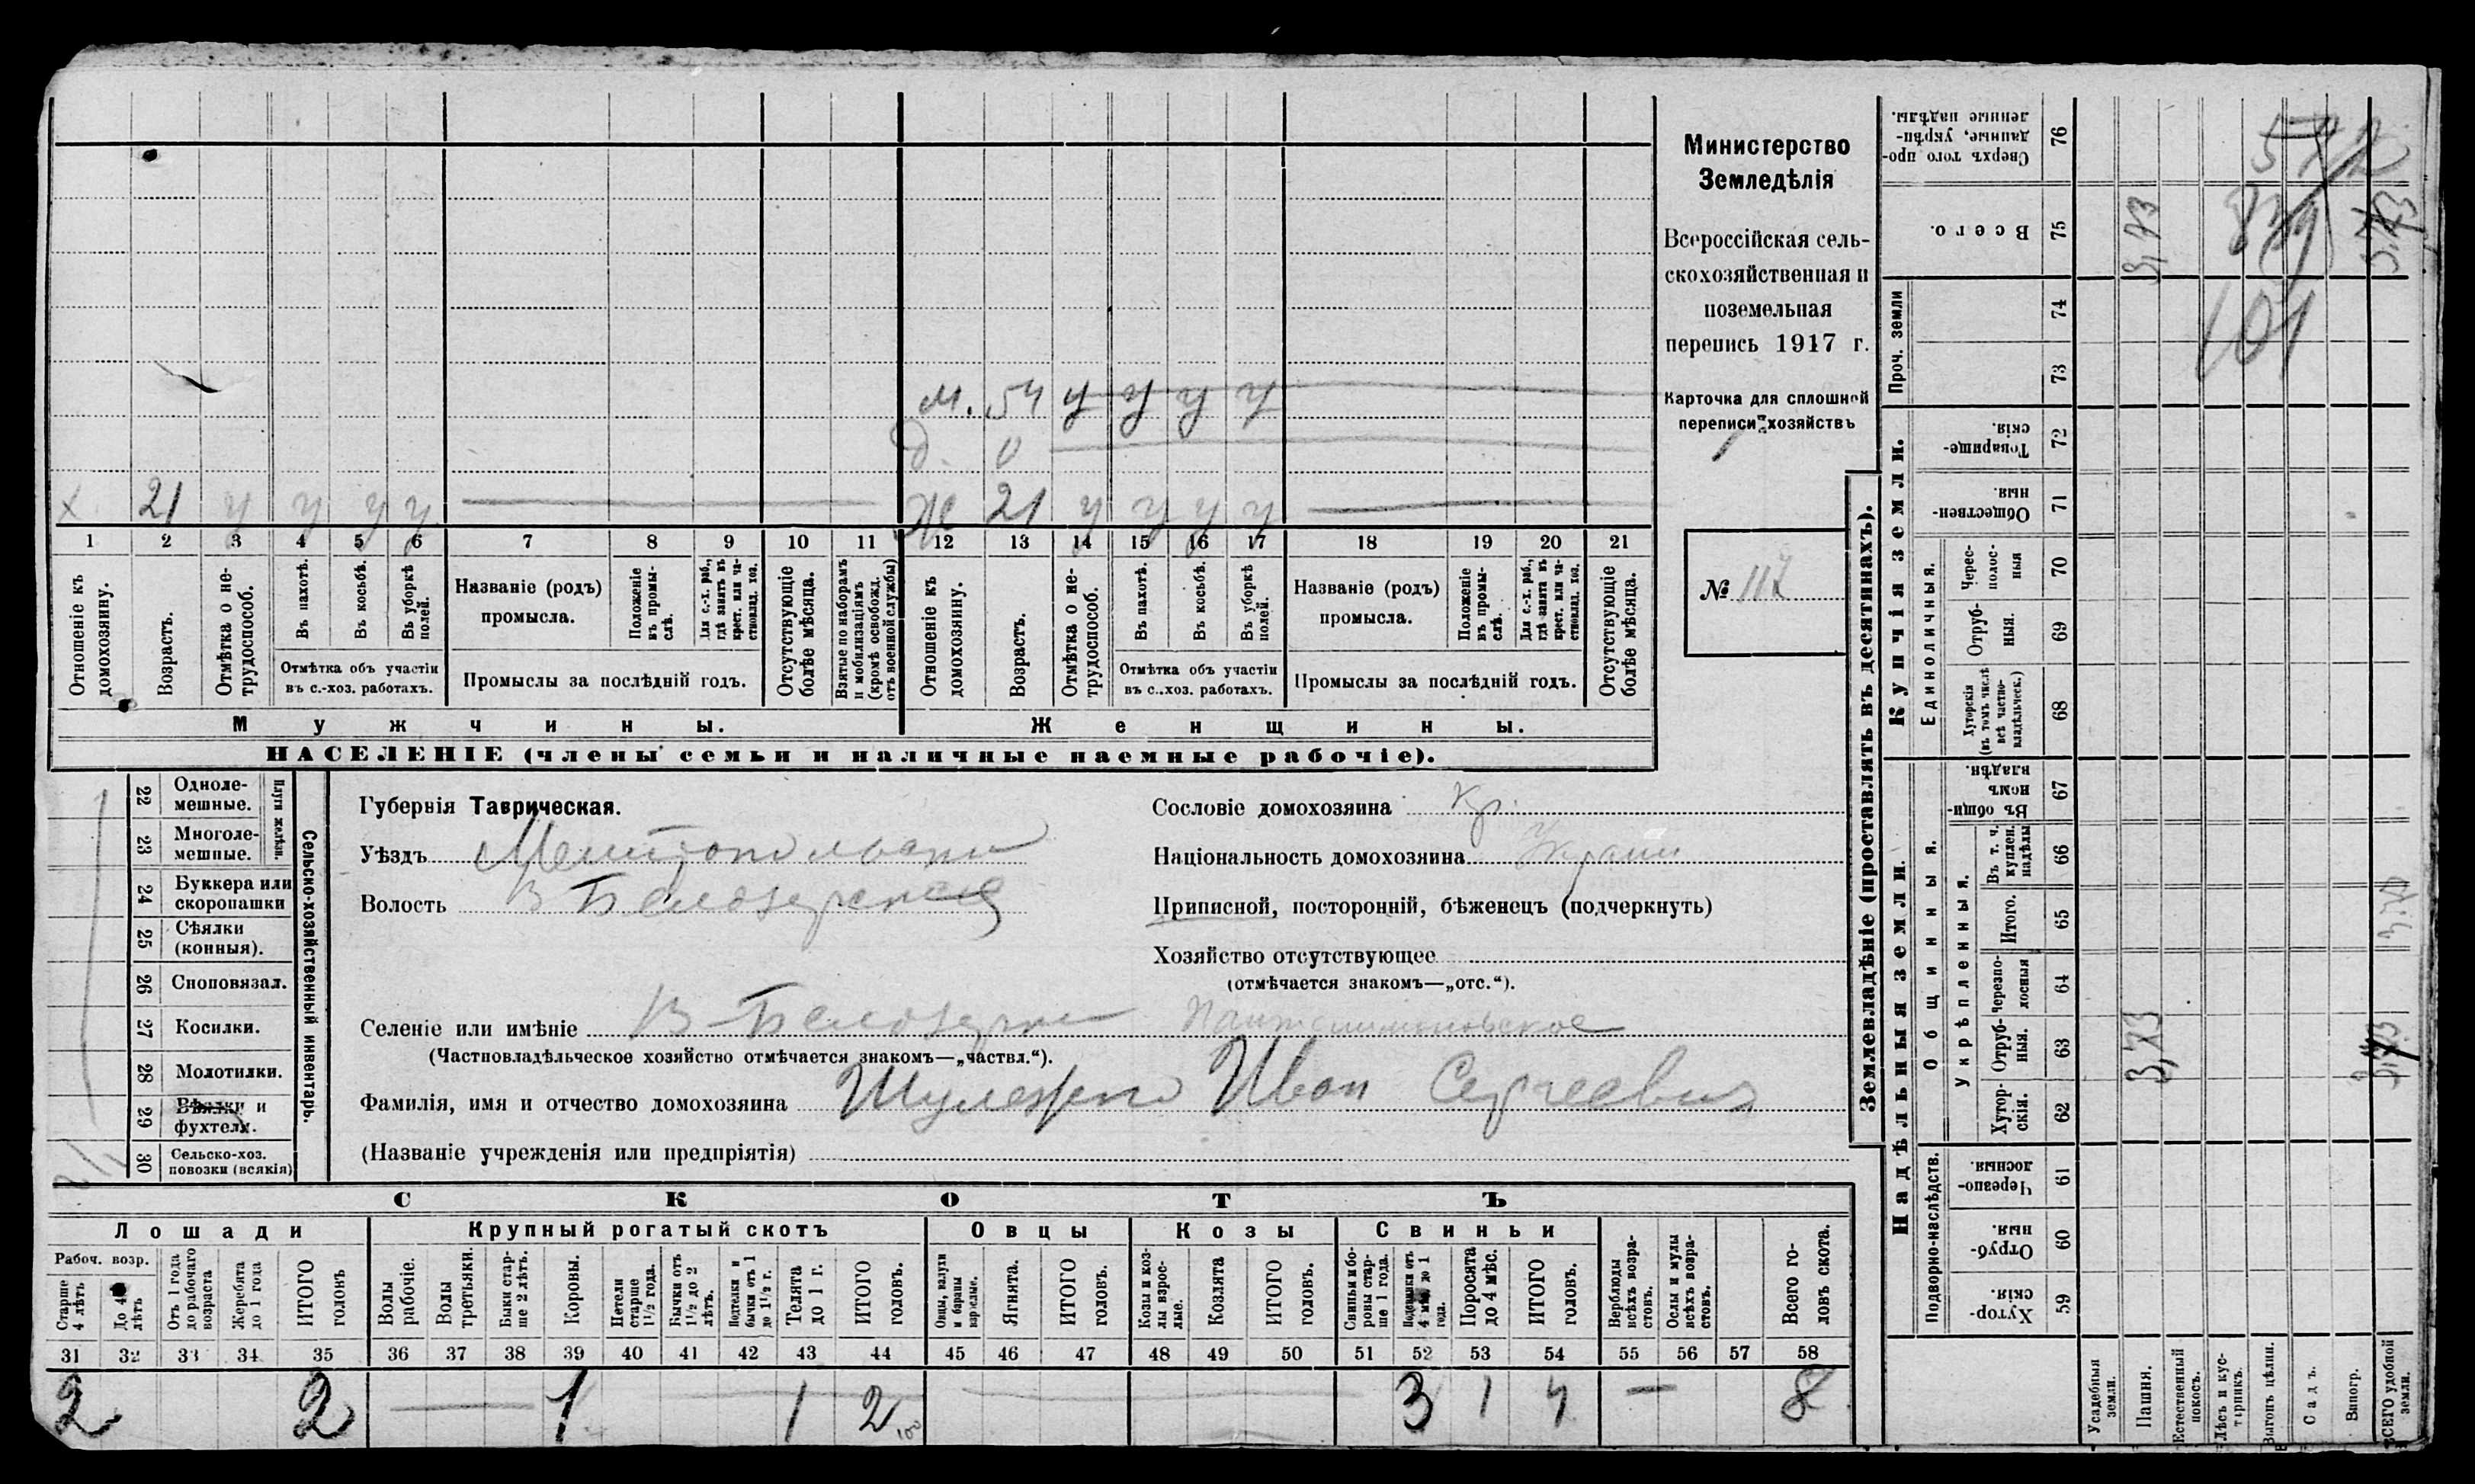 м. 54 у у у у
д. 0
х 21 у у у у Ж 21 у у у у
1 2 3 4 5 6 7 8 9 10 11 12 13 14 15 16 17 18 19 20 21
Отношеніе къ домохозяину.
Возрастъ.
Отмѣтка о не-
трудоспособ.
Въ пахотѣ.
Въ косьбѣ.
Въ уборкѣ
полей.
Отмѣтка объ участіи
въ с.-хоз. работахъ.
Названіе (родъ)
промысла.
Положеніе
въ промы-
слѣ.
Для с.-х. раб.,
гдѣ занятъ въ
крест. или ча-
стновлад. хоз.
Промыслы за послѣдній годъ.
Отсутствующіе
болѣе мѣсяца.
Взятые по наборамъ
и мобилизаціямъ
(кромѣ освобожд.
отъ военной службы)
Отношеніе къ
домохозяину.
Возрастъ.
Отмѣтка о не-
трудоспособ.
Въ пахотѣ.
Въ косьбѣ.
Въ уборкѣ
полей.
Отмѣтка объ участіи
въ с..хоз. работахъ.
Названіе (родъ)
промысла.
Положеніе
въ промы-
слѣ.
Для с.-х. раб.,
гдѣ занята въ
крест. или ча-
стновлад. хоз.
Промыслы за послѣдній годъ.
Отсутствующіе
болѣе мѣсяца.
Мужчины.
Женщины.
НАСЕЛЕНІЕ (члены семьи и наличные наемные рабочіе).
Министерство
Земледѣлія
Всероссійская сель-
скохозяйственная и
поземельная
перепись 1917 г.
Карточка для сплошной
переписи хозяйствъ
№ 117
22 Одноле-
мешные.
23 Многоле-
мешные.
Плуги желѣзн.
24 Буккера или
скоропашки
25 Сѣялки
(конныя).
26 Сноповязал.
27 Косилки.
28 Молотилки.
29 Вѣялки и
фухтели.
30 Сельско-хоз.
повозки (всякія)
Сельско-хозяйственный инвентарь.
Губернія Таврическая.
Уѣздъ Мелитопольскій
Волость В Белозерская
Селеніе или имѣніе В-Белозерка
(Частновладѣльческое хозяйство отмѣчается знакомъ—„частвл.“).
Фамилія, имя и отчество домохозяина Иван Сергеевич
(Названіе учрежденія или предпріятія)
Сословіе домохозяина Кр.
Національность домохозяина Украин
Приписной, посторонній, бѣженецъ (подчеркнуть)
Хозяйство отсутствующее
(отмѣчается знакомъ—„отс.“).
СКОТЪ
Лошади
Рабоч. возр.
Старше
4 лѣтъ
До 4
лѣтъ
Отъ 1 года
до рабочаго
возраста
Жеребята
до 1 года
ИТОГО
головъ
Крупный рогатый скотъ
Волы
рабочіе.
Волы
третьяки.
Быки стар-
ше 2 лѣтъ.
Коровы.
Нетели
старше
1½ года.
Бычки отъ
1½ до 2
лѣтъ.
Подтелки и
бычки отъ 1
до 1½ г.
Телята
до 1 г.
ИТОГО
головъ.
Овцы
Овцы, валухи
и бараны
взрослые.
Ягнята.
ИТОГО
головъ.
Козы
Козы и коз-
лы взрос-
лые.
Козлята
ИТОГО
головъ.
Свиньи
Свиньи и бо-
ровы стар-
ше 1 года.
Подсвинки отъ
4 мѣс. до 1
года.
Поросята
до 4 мѣс.
ИТОГО
головъ.
Верблюды
всѣхъ возра-
стовъ.
Ослы и мулы
всѣхъ возра-
стовъ.
Всего го-
ловъ скота.
31 32 33 34 35 36 37 38 39 40 41 42 43 44 45 46 47 48 49 50 51 52 53 54 55 56 57 58
2 2 1 1 2 3 1 4 — 8
Землевладѣніе (проставлять въ десятинахъ).
Сверхъ того про-
данные, укрѣп-
ленные надѣлы.
76
Всего.
75
3,73
Проч. земли
74
73
101
Купчія земли.
Товарище-
скія.
72
Обществен-
ныя.
71
Единоличныя.
Черес-
полос-
ныя
70
Отруб-
ныя.
69
Хуторскія
(въ томъ числѣ
всѣ частно-
владѣльческ.)
68
Надѣльныя земли.
Общинныя.
Въ общи-
номъ
владѣн.
67
Укрѣпленныя.
Въ т. ч.
куплен.
надѣлы
66
Итого.
65
Черезпо-
лосныя
64
Отруб-
ныя.
63
3,73
Хутор-
скія.
62
Подворно-наслѣдств.
Черезпо-
лосныя.
61
Отруб-
ныя.
60
Хутор-
скія.
59
Усадебныя
земли.
Пашня.
Естественный
покосъ.
Лѣсъ и кус-
тарникъ.
Выгонъ цѣлин.
Садъ.
Виногр.
ВСЕГО удобной
земли.